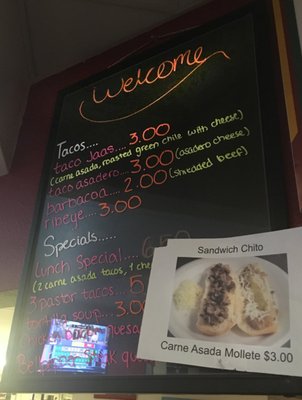 Welcome
Tacos....
taco Jaas.... 3.00
(carne asada, roasted green chile with cheese)
taco asadero.... 3.00 (asadero cheese)
barbacoa.... 2.00 (shredded beef)
ribeye.... 3.00
Specials.....
lunch Special.... 6.50
(2 carne asada tacos, 1
3 pastor tacos.... 5
tortilla soup.... 3.00
Sandwich Chito
Carne Asada Mollete $3.00